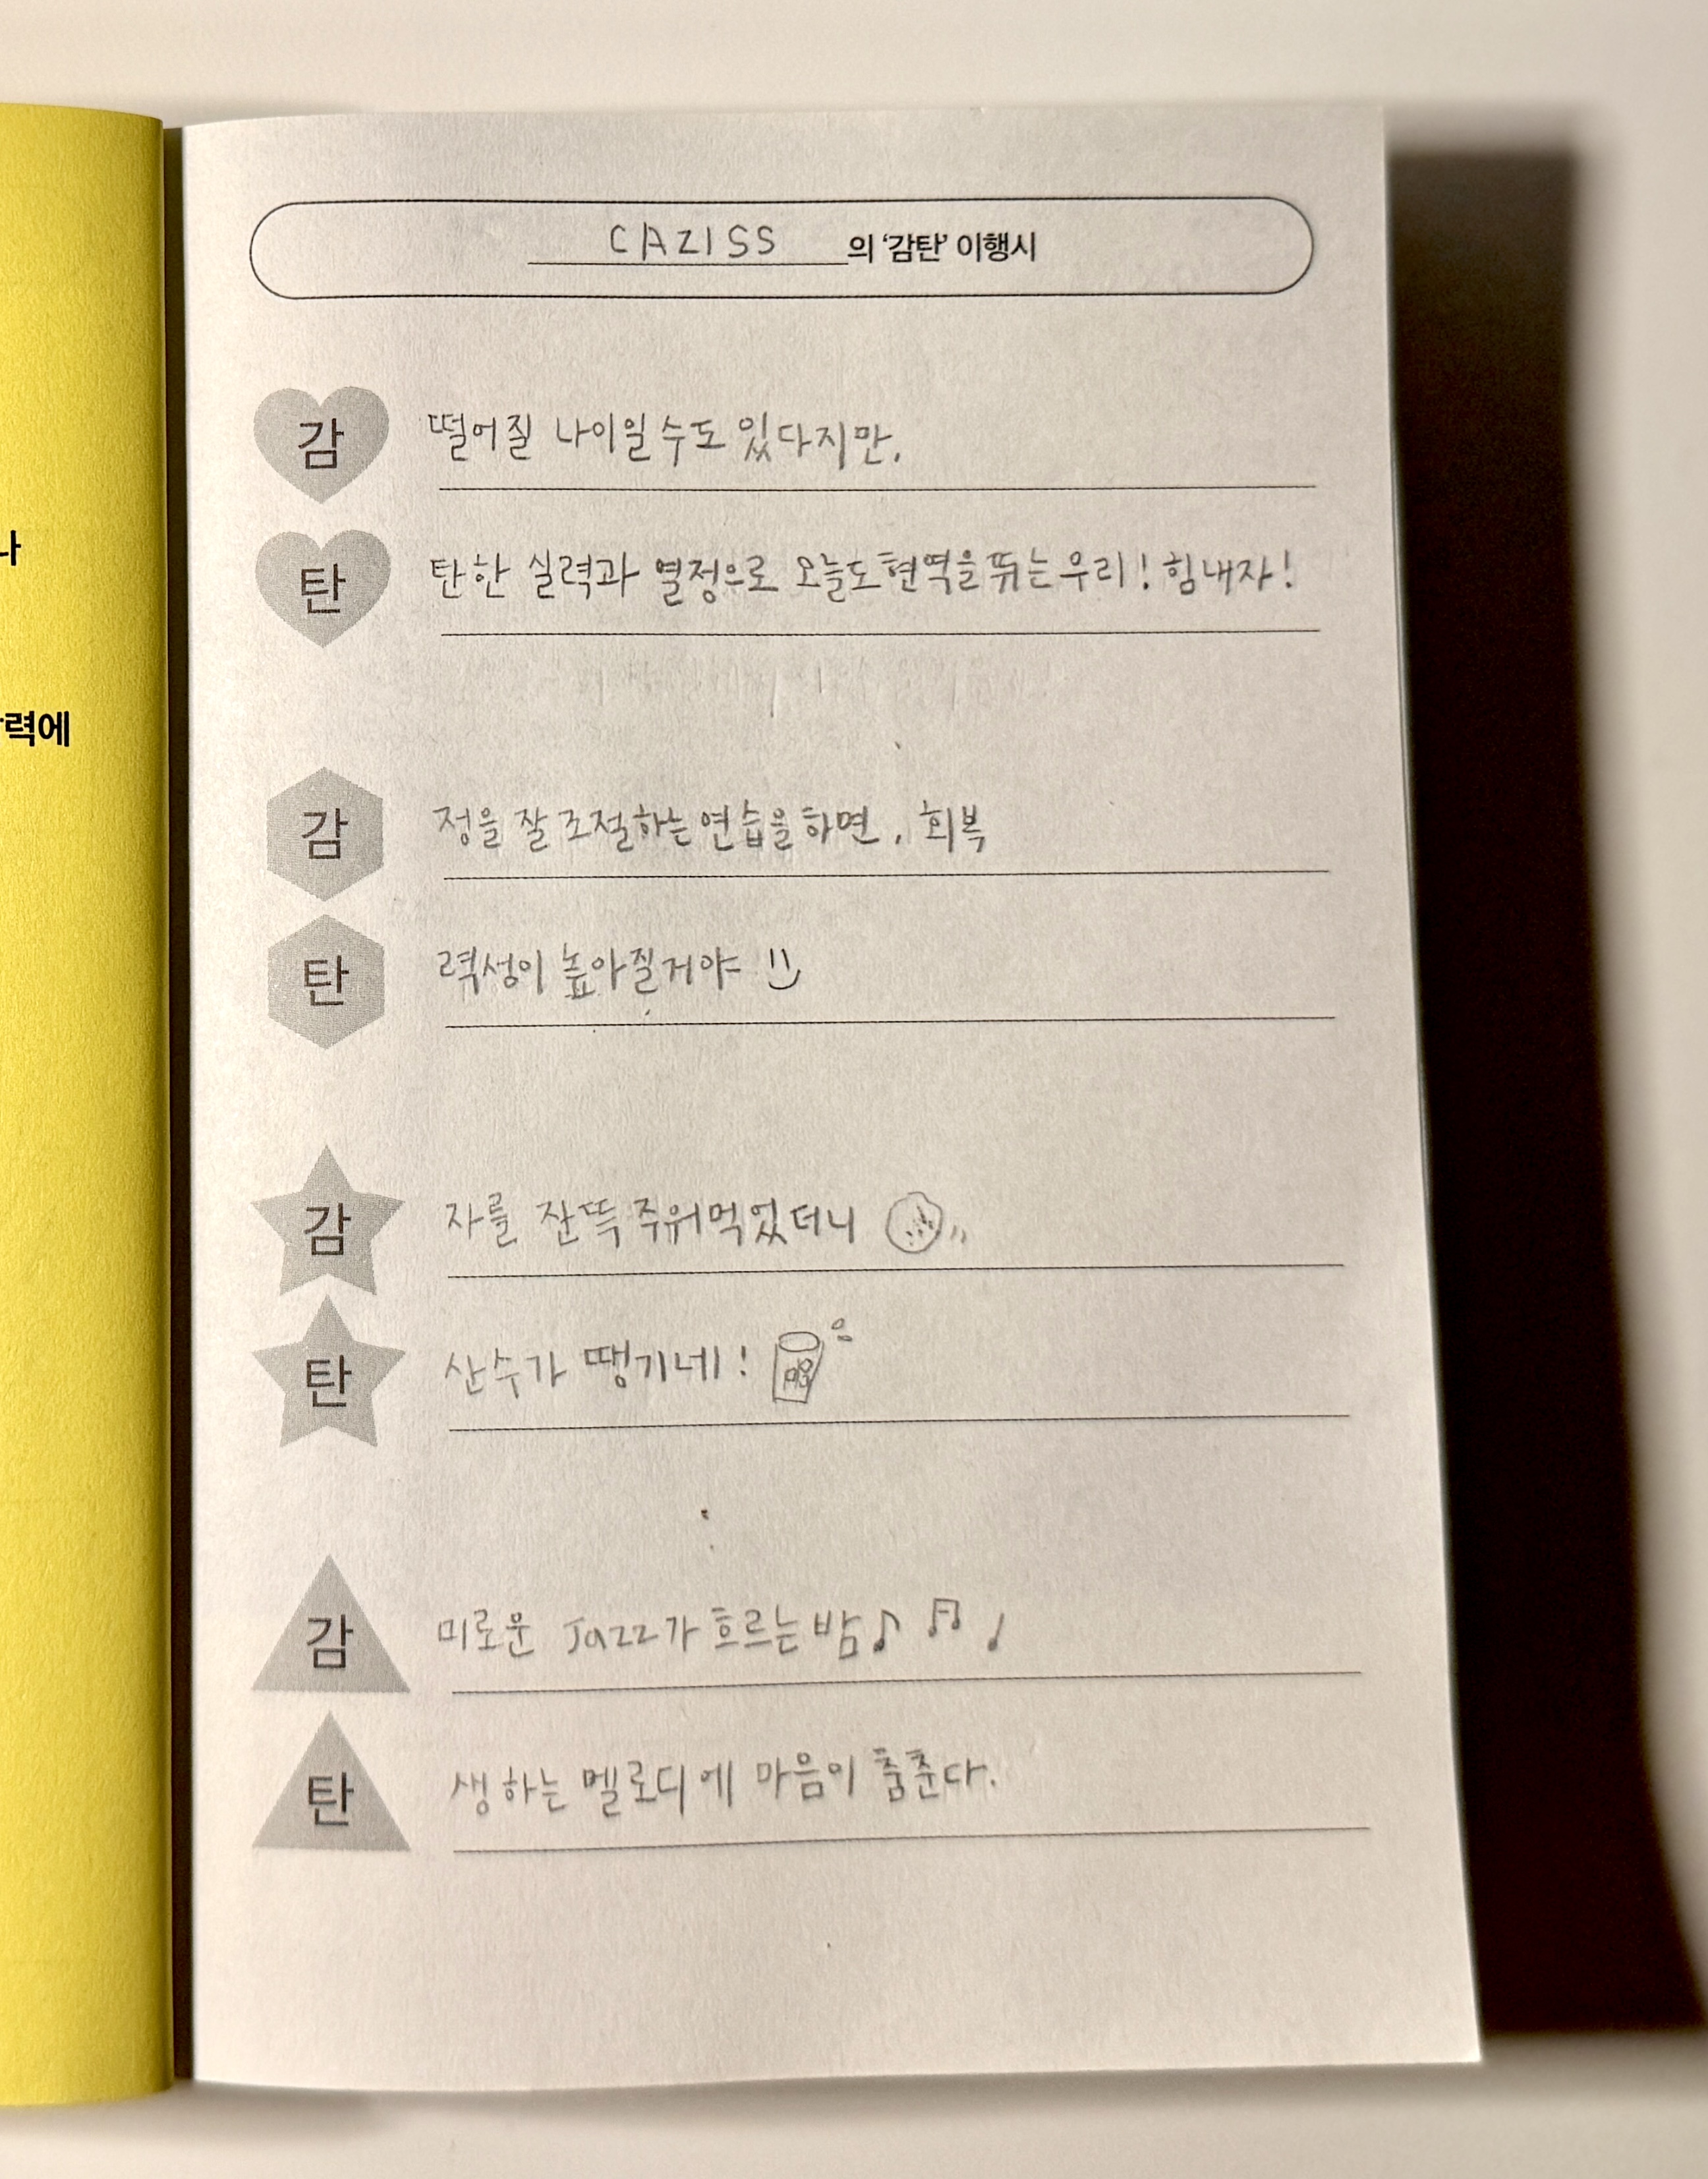 CAZISS의 '감탄' 이행시
감 떨어질 나이일 수도 있다지만,
탄 탄한 실력과 열정으로 오늘도 현역을 뛰는 우리! 힘내자!
나
력에
감 정을 잘 조절하는 연습을 하면, 회복
탄 력성이 높아질거야
감 자를 잔뜩 주워먹었더니
탄 산수가 땡기네!
감 미로운 Jazz가 흐르는 밤
탄 생하는 멜로디에 마음이 춤춘다.